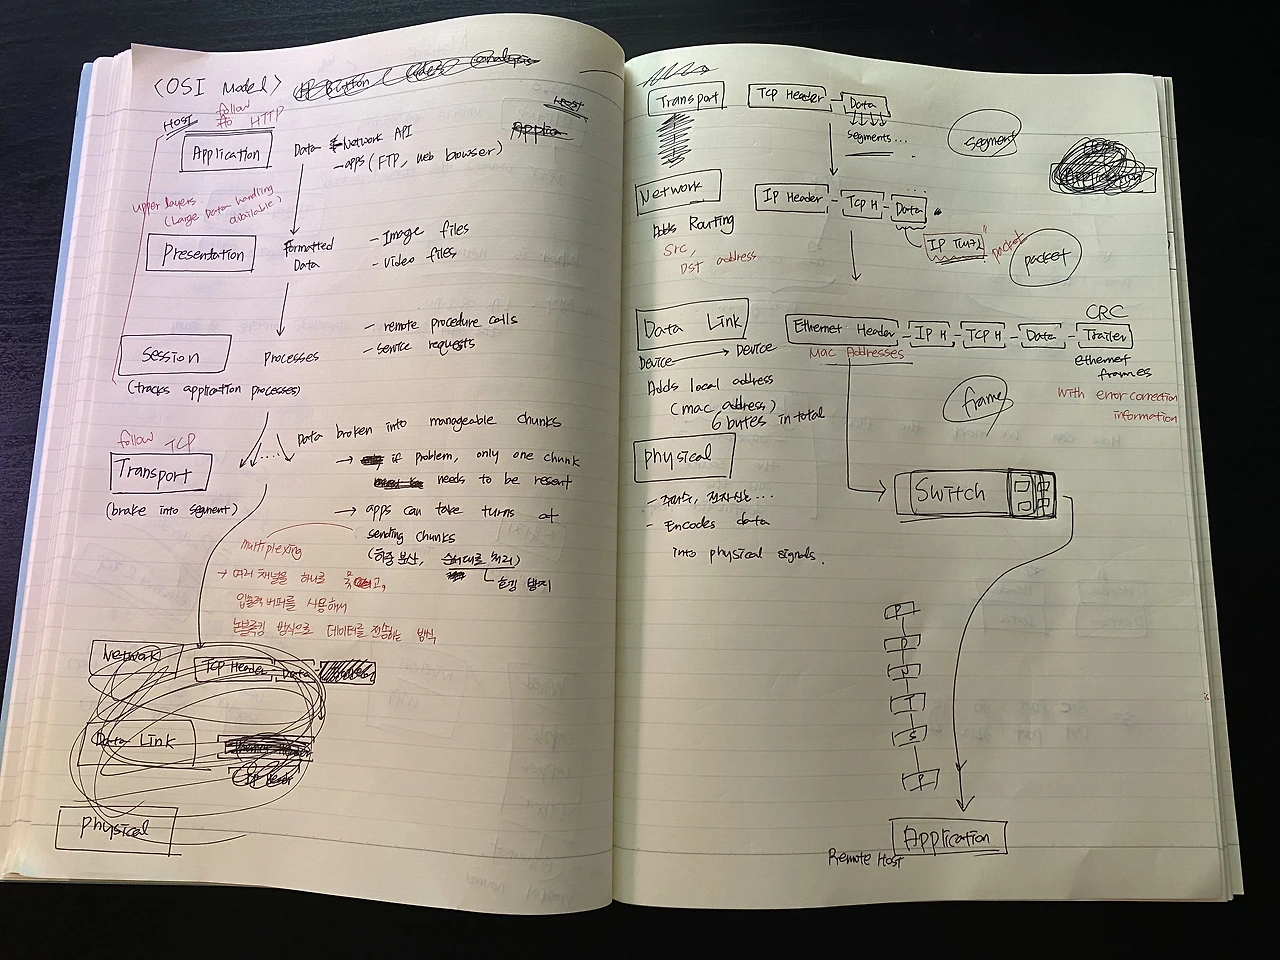 <OSI Model>
HOST
follow
HTTP
Application
Data
Network API
- apps (FTP, web browser)
upper layers.
(Large Data handling
available)
Presentation
Formatted
Data
- Image files
- video files
Session
processes
- remote procedure calls
- service requests
(tracks application processes)
follow TCP
Transport
(brake into segment)
Data broken into manageable chunks
→ if problem, only one chunk
needs to be resent
→ apps can take turns at
sending chunks
(하중 분산, 순서대로 처리)
multiplexing
→ 여러 채널을 하나로
입출력 버퍼를 사용해서
논블록킹 방식으로 데이터를 전송하는 방식
Network
TCP Header
Data
Data Link
physical
Transport
TCP Header - Data
segments...
segment
Network
IP Header - TCP H - Data
Adds Routing
Src,
DST address
packet
packet
Data Link
Ethernet Header - IP H - TCP H - Data - Trailer
CRC
Mac Addresses
ethernet
frames
Device → Device
Adds local address
(mac address)
6 bytes in total
frame
with error correction
information
physical
- 주파수, 전자신호...
- Encodes data
into physical signals.
Switch
P
D
N
T
S
P
Application
Remote Host